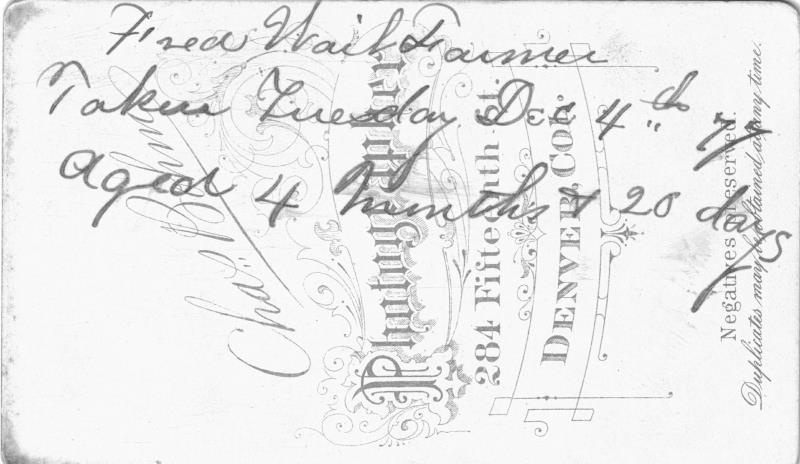 Fred Wait Farmer
Taken Tuesday Dec 4th 77
Aged 4 months & 20 days
Chas. Bohm
Photographer
284 Fifteenth St.
DENVER, COL.
Negatives Reserved.
Duplicates may be obtained at any time.